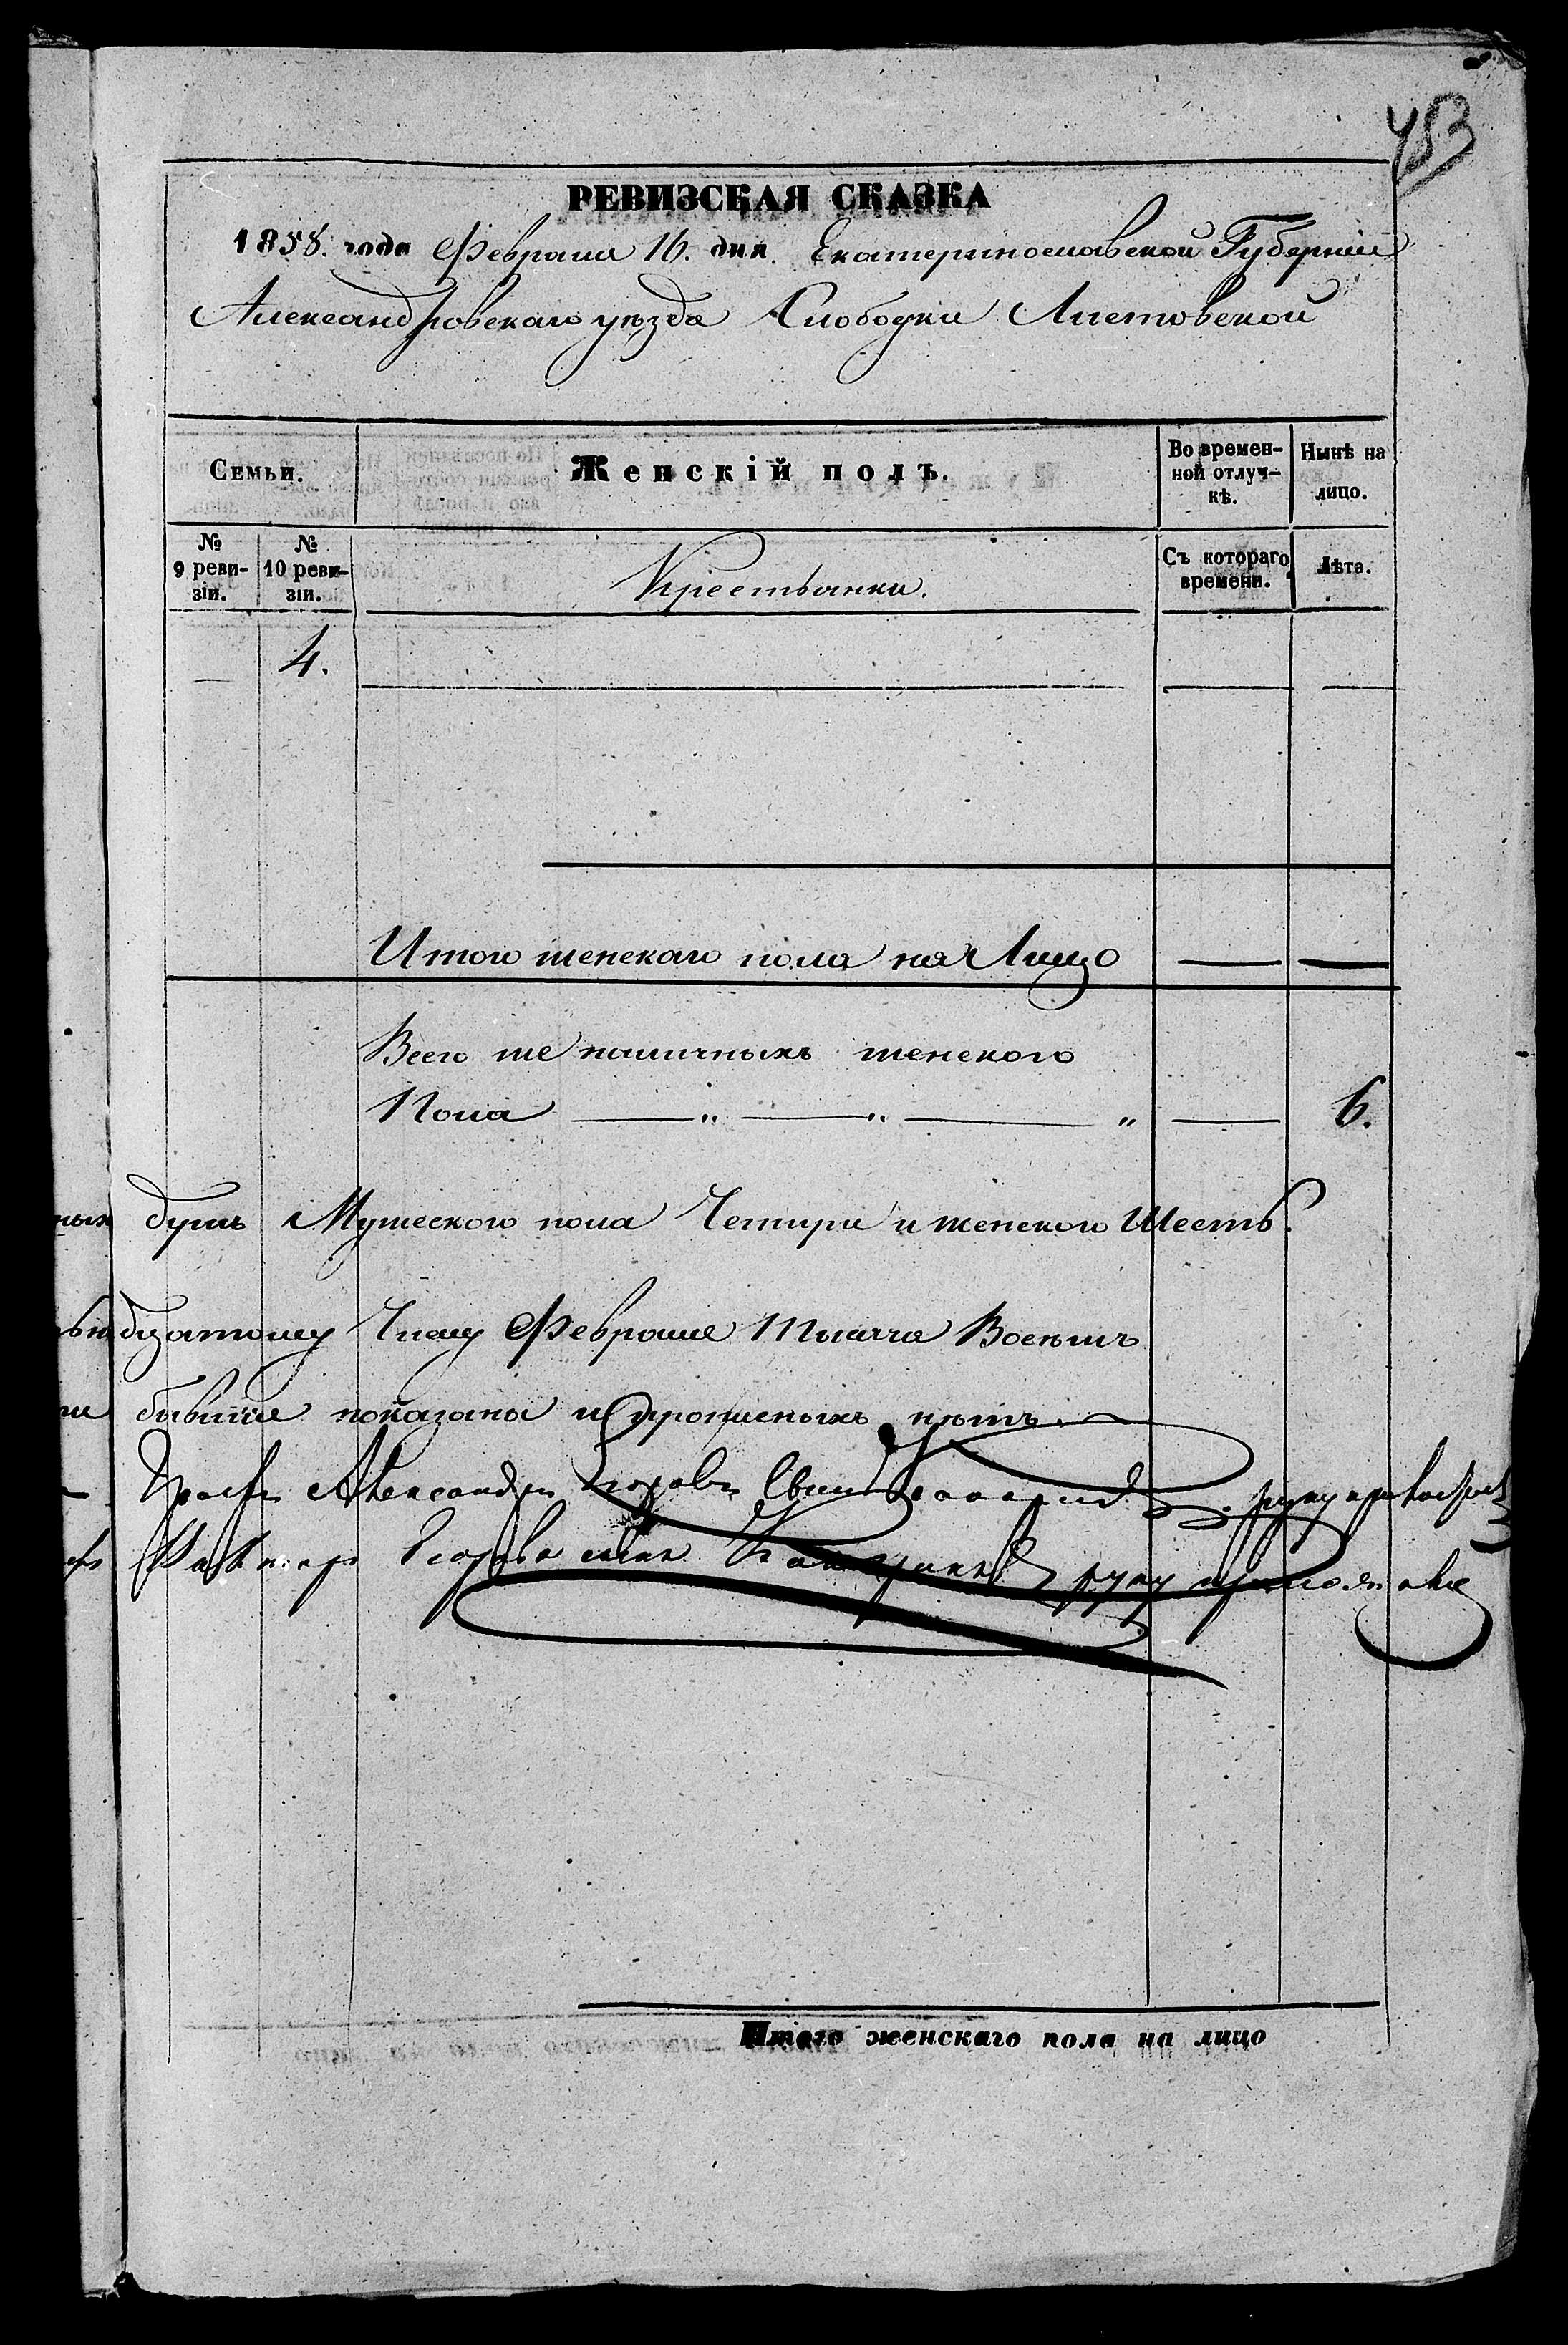 453
РЕВИЗСКАЯ СКАЗКА
1858. года Февраля 16. дня. Екатеринославской Губерніи
Александровскаго уѣзда Слободки Листовской
Семьи.
Женскій полъ.
Во времен-
ной отлуч-
кѣ.
Нынѣ на
лицо.
№
9 реви-
зіи.
№
10 реви-
зіи.
Крестьянки.
Съ котораго
времени.
Лѣта.
— 4.
Итого женскаго пола на Лицо — —
Всего же наличныхъ женского
Пола — „ — „ — „ — 6.
душъ Мужеского пола Четыри и женского Шесть.
дцатому Числу Февраля Тысяча Восѣмъ
бывшие показаны и прописныхъ нѣтъ.
Александръ
Егорова сынъ руку приложилъ
Итого женскаго пола на лицо